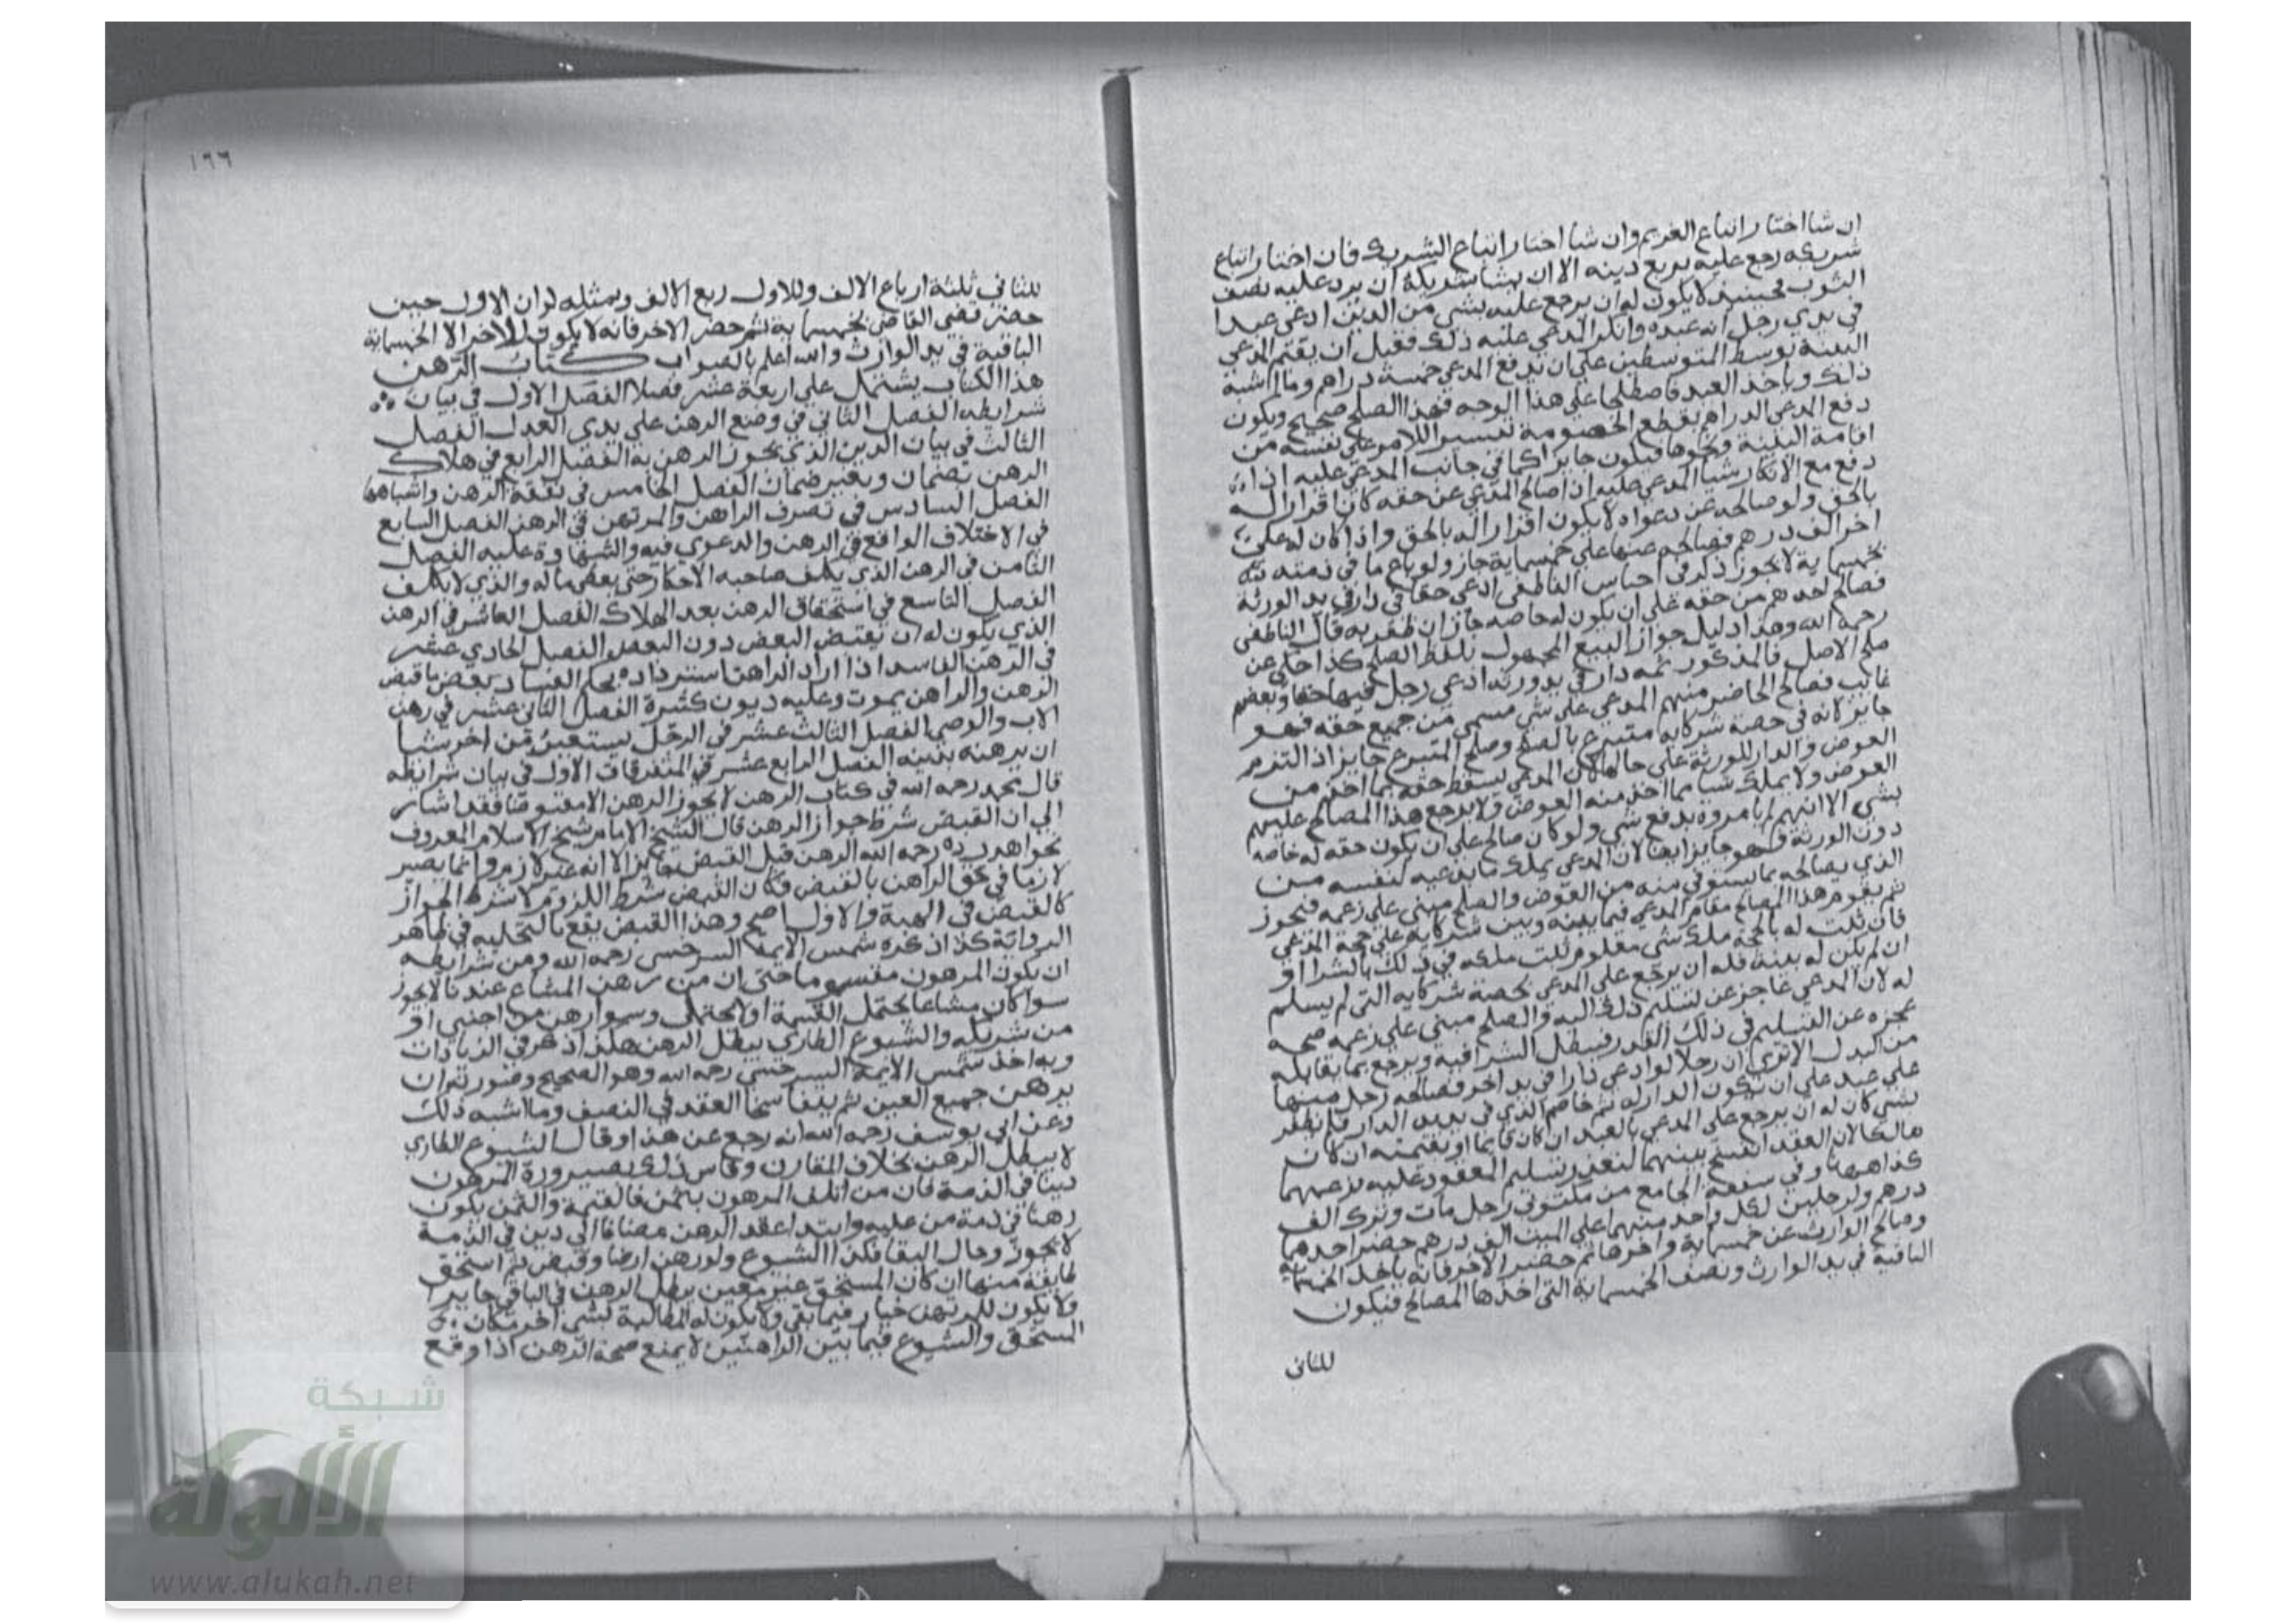 ان شا اختار اتباع الغريم وان شا اختار اتباع الشريك فان اختار اتباع
شريكه رجع عليه بربع دينه الا ان يشا شريكه ان يرد عليه نصف
الثوب فحينيذ لا يكون له ان يرجع عليه بشي من الدين ادعي عبدا
في يدي رجل انه عبده وانكر المدعي عليه ذلك فقبل ان يقيم المدعي
البينة توسط المتوسطين علي ان يدفع المدعي خمسة دراهم وما اشبه
ذلك وياخذ العبد فاصطلحا علي هذا الوجه فهذا الصلح صحيح ويكون
دفع المدعي الدراهم لقطع الخصومة تيسيرا للامر علي نفسه من
اقامة البينة ونحوها فيكون جايزا كما في جانب المدعي عليه اذا
دفع مع الانكار شيا المدعي عليه اذا صالح المدعي عن حقه كان اقرارا له
بالحق ولو صالحه عن دعواه لا يكون اقرارا له بالحق واذا كان له علي
اخر الف درهم فصالحه عنها علي خمسماية جاز ولو باع ما في ذمته منه
بخمسماية لا يجوز ذكر في اجناس الناطفي ادعي حقا في دار في يد الورثة
فصالح احدهم من حقه علي ان يكون له خاصة جاز ان ظفر به قال الناطفي
رحمه الله وهذا دليل جواز البيع المجهول بلفظ الصلح كذا حكي عن
صلح الاصل فالمذكور ثمه دار في يد ورثة ادعي رجل فيها حقا وبعضهم
غايب فصالح الحاضر منهم المدعي علي شي مسمي من جميع حقه فهو
جايز لانه في حصة شركايه متبرع بالصلح وصلح المتبرع جايز اذا التزم
العوض والدار للورثة علي حالها لان المدعي يسقط حقه بما اخذ من
العوض ولا يملك شيا مما اخذ منه العوض ولا يرجع هذا المصالح عليهم
بشي الا انهم لم يامروه بدفع شي ولو كان صالح علي ان يكون حقه له خاصة
دون الورثة فهو جايز ايضا لان المدعي يملك ما يدعيه لنفسه من
الذي يصالحه بما يستوفي منه من العوض والصلح مبني علي زعمه فيجوز
ثم يقوم هذا المصالح مقام المدعي فيما بينه وبين شركايه علي حجة المدعي
فان ثبت له بالحجة ملك شي معلوم ثبت ملكه في ذلك بالشرا او
ان لم يكن له بينة فله ان يرجع علي المدعي بحصة شركايه التي لم يسلم
له لان المدعي عاجز عن تسليم ذلك اليه والصلح مبني علي زعمه صحه
عجزه عن التسليم في ذلك القدر فيبطل الشرا فيه ويرجع بما يقابله
من البدل الا تري ان رجلا لو ادعي دارا في يد اخر فصالحه رجل منها
علي عبد علي ان تكون الدار له ثم خاصم الذي في يديه الدار فلم يظفر
بشي كان له ان يرجع علي المدعي بالعبد ان كان قايما او بقيمته ان كان
هالكا لان العقد انفسخ بينهما لتعذر تسليم المعقود عليه بزعمهما
كذا ههنا وفي سعفة الجامع من مكتوبي رجل مات وترك الف
درهم ولرجلين لكل واحد منهما علي الميت الف درهم حضر احدهما
وصالح الوارث عن خمسماية واخرها ثم حضر الاخر فانه ياخذ الخمسماية
الباقية في يد الوارث ونصف الخمسماية التي اخذها المصالح فيكون
للثاني
١٦٦
للثاني ثلثة ارباع الالف وللاول ربع الالف وبمثله لو ان الاول حين
حضر قضي القاضي بخمسماية ثم حضر الاخر فانه لا يكون للاخر الا الخمسماية
الباقية في يد الوارث والله اعلم بالصواب كتاب الرهن
هذا الكتاب يشتمل علي اربعة عشر فصلا الفصل الاول في بيان
شرايطه الفصل الثاني في وضع الرهن علي يدي العدل الفصل
الثالث في بيان الدين الذي يجوز الرهن به الفصل الرابع في هلاك
الرهن بضمان وبغير ضمان الفصل الخامس في نفقة الرهن واشباهها
الفصل السادس في تصرف الراهن والمرتهن في الرهن الفصل السابع
في الاختلاف الواقع في الرهن والدعوي فيه والشهادة عليه الفصل
الثامن في الرهن الذي يكلف صاحبه الاحضار حتي يعطي ماله والذي لا يكلف
الفصل التاسع في استحقاق الرهن بعد الهلاك الفصل العاشر في الرهن
الذي يكون له ان يقبض البعض دون البعض الفصل الحادي عشر
في الرهن الفاسد اذا اراد الراهن استرداده بحكم الفساد بعض ما قبض
الرهن والراهن يموت وعليه ديون كثيرة الفصل الثاني عشر في رهن
الاب والوصي الفصل الثالث عشر في الرجل يستعير من اخر شيا
ان يرهنه بدينه الفصل الرابع عشر في المتفرقات الاول في بيان شرايطه
قال محمد رحمه الله في كتاب الرهن لا يجوز الرهن الا مقبوضا فقد اشار
الي ان القبض شرط جواز الرهن قال الشيخ الامام شيخ الاسلام المعروف
بخواهرزاده رحمه الله الرهن قبل القبض جايز الا انه غير لازم وانما يصير
لازما في حق الراهن بالقبض فكان القبض شرط اللزوم لا شرط الجواز
كالقبض في الهبة والاول اصح وهذا القبض يقع بالتخلية في ظاهر
الرواية كذا ذكره شمس الايمة السرخسي رحمه الله ومن شرايطه
ان يكون المرهون مقسوما حتي ان من رهن المشاع عندنا لا يجوز
سوا كان مشاعا يحتمل القسمة او لا يحتمل وسوا رهن من اجنبي او
من شريكه والشيوع الطاري يبطل الرهن هكذا ذكر في الزيادات
وبه اخذ شمس الايمة السرخسي رحمه الله وهو الصحيح وصورته ان
يرهن جميع العين ثم يتفاسخا العقد في النصف وما اشبه ذلك
وعن ابي يوسف رحمه الله انه رجع عن هذا وقال الشيوع الطاري
لا يبطل الرهن بخلاف المقارن وقاس ذلك بصيرورة المرهون
دينا في الذمة فان من اتلف المرهون بثمن فالقيمة والثمن يكون
رهنا في ذمة من عليه وابتدا عقد الرهن مضافا الي دين في الذمة
لا يجوز وحال البقا فكذا الشيوع ولو رهن ارضا وقبض ثم استحق
طايفة منها ان كان المستحق غير معين يبطل الرهن في الباقي جايز
ولا يكون للمرتهن خيار فيما بقي ولا يكون له المطالبة بشي اخر مكان
المستحق والشيوع فيما بين الراهنين لا يمنع صحة الرهن اذا وقع
شبكة
الألوكة
www.alukah.net